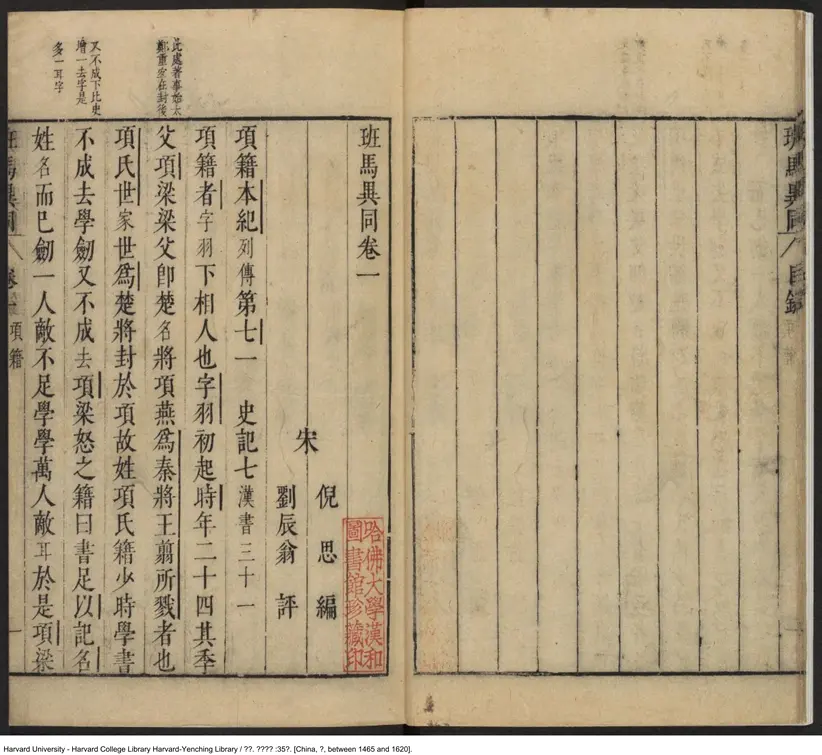 班馬異同 目錄
班馬異同卷一
宋
倪思編
劉辰翁評
哈佛大學漢和
圖書館珍藏印
項籍本紀列傳第七一 史記七漢書三十一
項籍者字羽下相人也字羽初起時年二十四其季
父項梁梁父卽楚名將項燕爲秦將王翦所戮者也
項氏世家世爲楚將封於項故姓項氏籍少時學書
不成去學劒又不成去項梁怒之籍曰書足以記名
姓名而已劒一人敵不足學學萬人敵耳於是項梁
此處著事始太
鄭重家在封後
又不成下比史
增一去字是
多一耳字
班馬異同 卷一 項籍 一
Harvard University - Harvard College Library Harvard-Yenching Library / ??. ???? :35?. [China, ?, between 1465 and 1620].